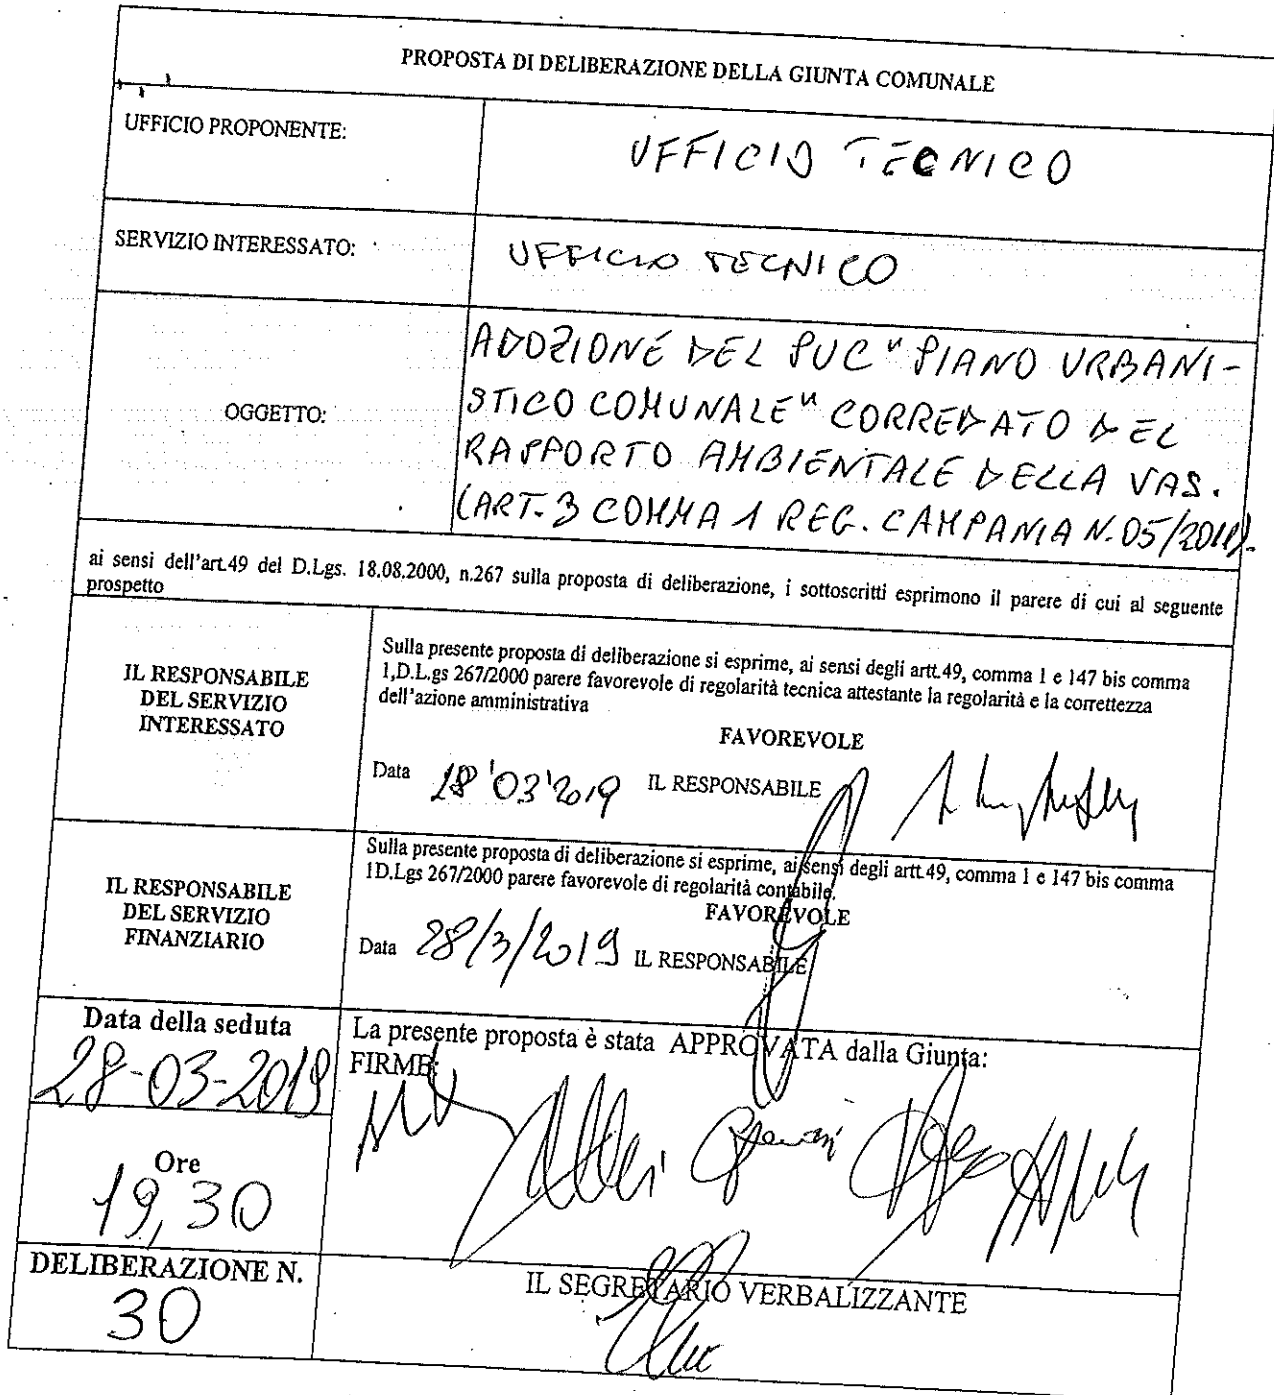 PROPOSTA DI DELIBERAZIONE DELLA GIUNTA COMUNALE
UFFICIO PROPONENTE:
UFFICIO TECNICO
SERVIZIO INTERESSATO:
UFFICIO TECNICO
OGGETTO:
ADOZIONE DEL PUC "PIANO URBANI-
STICO COMUNALE" CORREDATO DEL
RAPPORTO AMBIENTALE DELLA VAS.
(ART. 3 COMMA 1 REG. CAMPANIA N. 05/2011).
ai sensi dell'art.49 del D.Lgs. 18.08.2000, n.267 sulla proposta di deliberazione, i sottoscritti esprimono il parere di cui al seguente
prospetto
IL RESPONSABILE
DEL SERVIZIO
INTERESSATO
Sulla presente proposta di deliberazione si esprime, ai sensi degli artt.49, comma 1 e 147 bis comma
1,D.L.gs 267/2000 parere favorevole di regolarità tecnica attestante la regolarità e la correttezza
dell'azione amministrativa
FAVOREVOLE
Data 28'03'2019 IL RESPONSABILE
IL RESPONSABILE
DEL SERVIZIO
FINANZIARIO
Sulla presente proposta di deliberazione si esprime, ai sensi degli artt.49, comma 1 e 147 bis comma
1D.Lgs 267/2000 parere favorevole di regolarità contabile.
FAVOREVOLE
Data 28/3/2019 IL RESPONSABILE
Data della seduta
28-03-2019
Ore
19,30
La presente proposta è stata APPROVATA dalla Giunta:
FIRME:
DELIBERAZIONE N.
30
IL SEGRETARIO VERBALIZZANTE